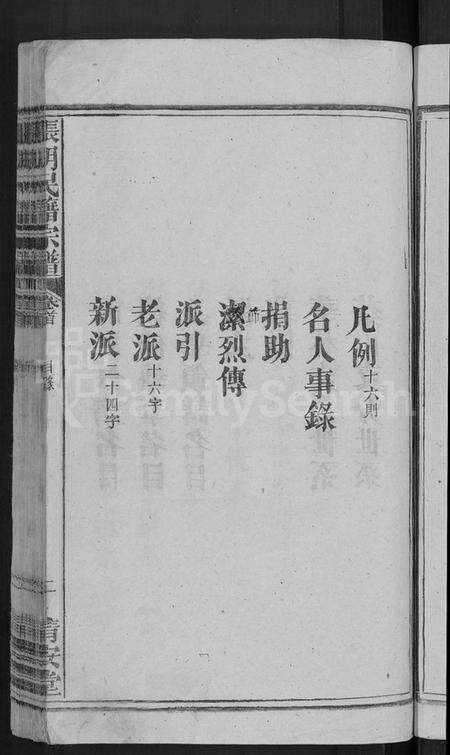 凡例十六則
名人事錄
捐助
節
潔烈傳
派引
老派十六字
新派二十四字
宗譜
卷首
目錄
二
FamilySearch